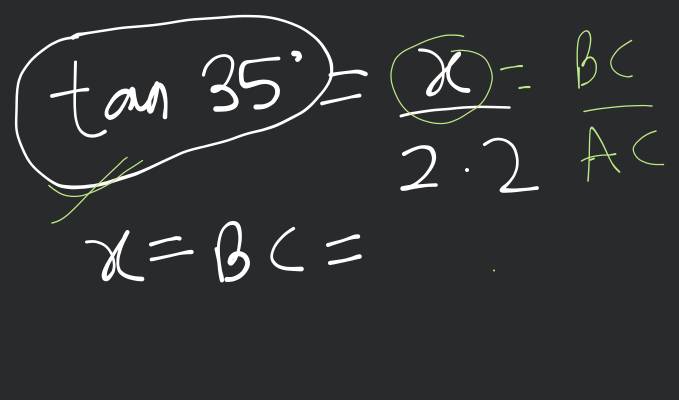 tan 35° = x/2.2 = BC/AC
x = BC =